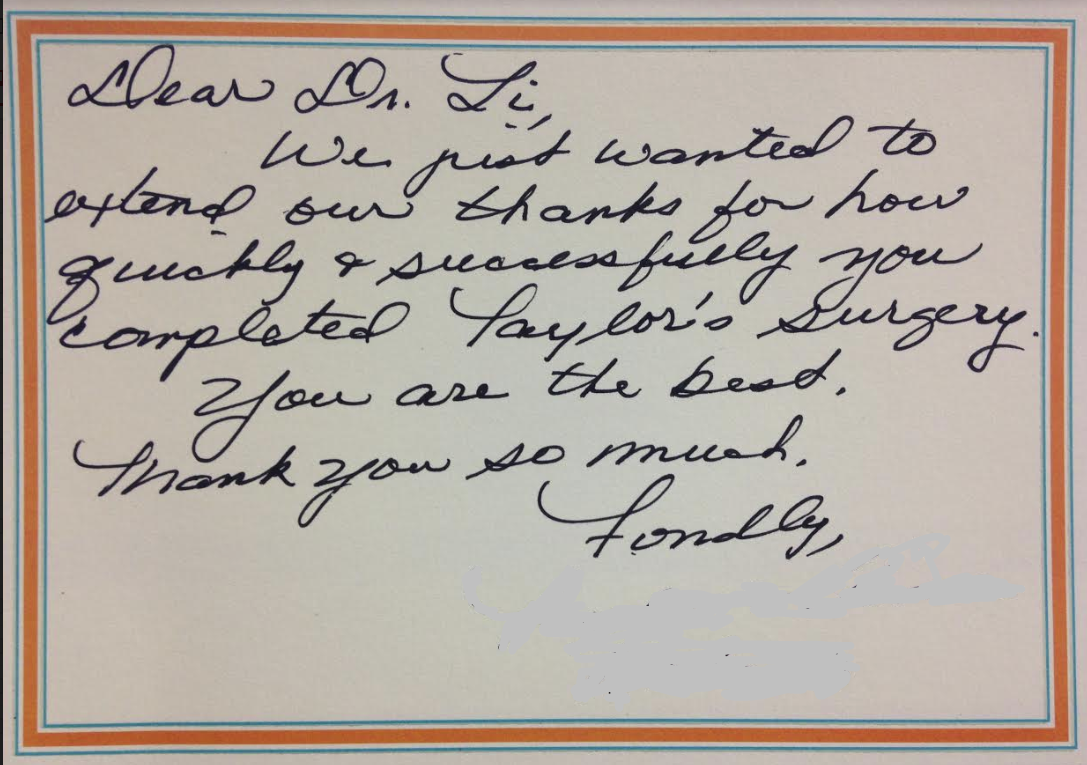 Dear Dr. Li,
We just wanted to
extend our thanks for how
quickly & successfully you
completed Taylor's surgery.
You are the best.
Thank you so much.
Fondly,